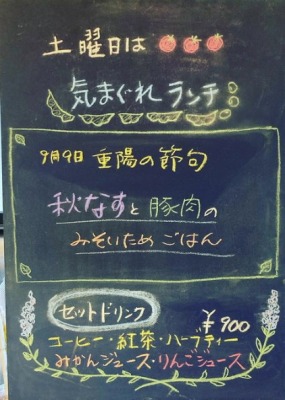 土曜日は
気まぐれランチ
9月9日 重陽の節句
秋なすと豚肉の
みそいためごはん
セットドリンク
¥900
コーヒー・紅茶・ハーブティー
みかんジュース・りんごジュース